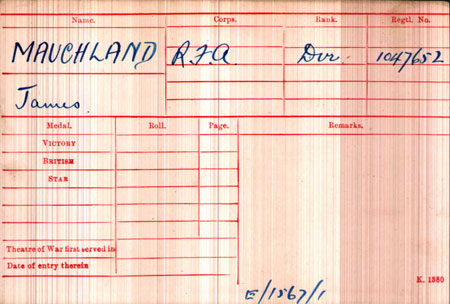 Name. Corps. Rank. Regtl. No.
MAUCHLAND R.F.A. Dvr. 1047652
James.
Medal. Roll. Page. Remarks.
VICTORY
BRITISH
STAR
Theatre of War first served in
Date of entry therein
K. 1380
E/1567/1